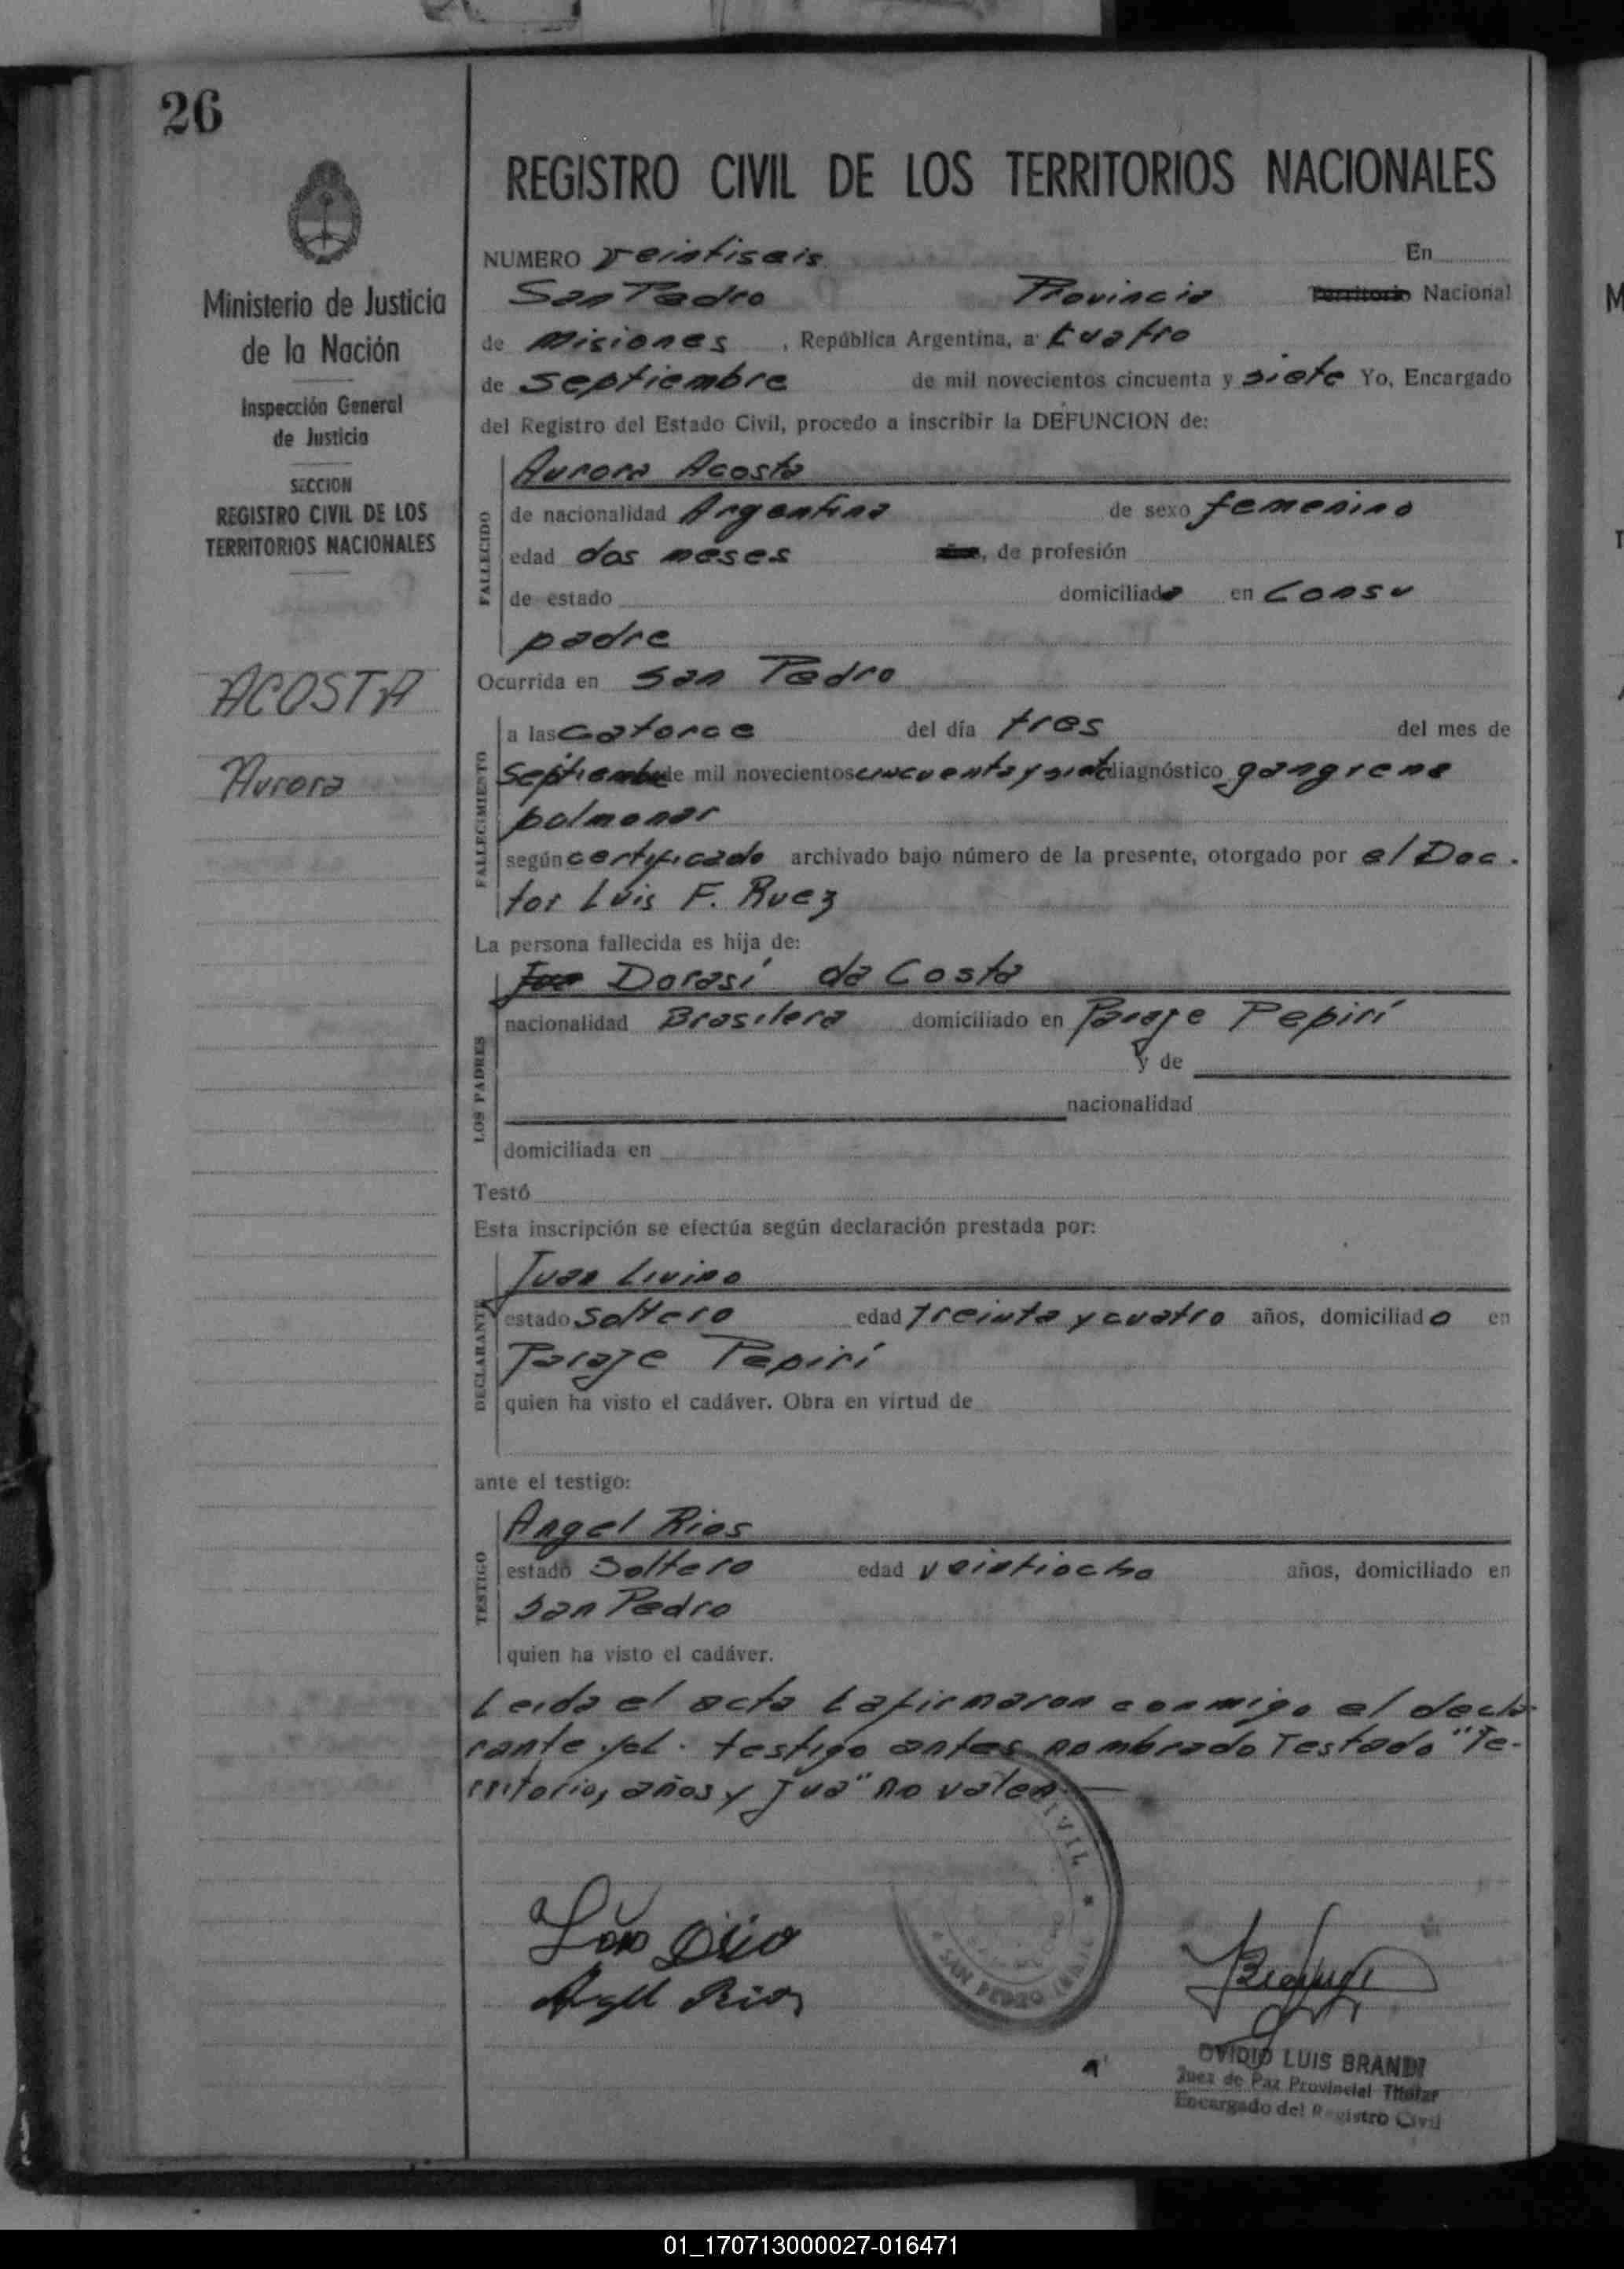 26
REGISTRO CIVIL DE LOS TERRITORIOS NACIONALES
Ministerio de Justicia
de la Nación
Inspección General
de Justicia
SECCION
REGISTRO CIVIL DE LOS
TERRITORIOS NACIONALES
ACOSTA
Aurora
NUMERO veintiseis En
San Pedro Provincia Territorio Nacional
de Misiones , República Argentina, a cuatro
de septiembre de mil novecientos cincuenta y siete Yo, Encargado
del Registro del Estado Civil, procedo a inscribir la DEFUNCION de:
FALLECIDO
Aurora Acosta
de nacionalidad Argentina de sexo femenino
edad dos meses años, de profesión
de estado domiciliada en Con su
padre
Ocurrida en San Pedro
FALLECIMIENTO
a las catorce del día tres del mes de
septiembre de mil novecientos cincuenta y siete diagnóstico gangrena
pulmonar
según certificado archivado bajo número de la presente, otorgado por el Doc.
tor Luis F. Ruez
La persona fallecida es hija de:
LOS PADRES
Jua Dorasí da Costa
nacionalidad Brasilera domiciliado en Paraje Pepirí
y de
nacionalidad
domiciliada en
Testó
Esta inscripción se efectúa según declaración prestada por:
DECLARANTE
Juan Livino
estado Soltero edad treinta y cuatro años, domiciliado en
Paraje Pepirí
quien ha visto el cadáver. Obra en virtud de
ante el testigo:
TESTIGO
Angel Rios
estado Soltero edad veintiocho años, domiciliado en
San Pedro
quien ha visto el cadáver.
Leida el acta la firmaron conmigo el decla-
rante y el testigo antes nombrado Testado "Te-
rritorio, años y Jua" no valen
CIVIL
SAN PEDRO
Angel Rios
OVIDIO LUIS BRANDI
Juez de Paz Provincial Titular
Encargado del Registro Civil
01_170713000027-016471